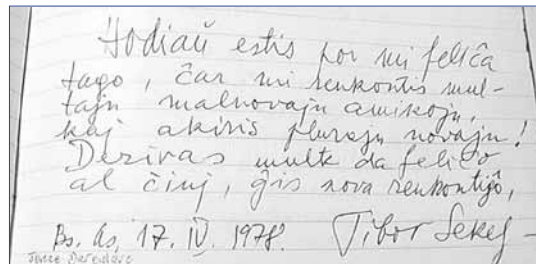 Hodiaŭ estis por mi feliĉa
tago, ĉar mi renkontis mul-
tajn malnovajn amikojn,
kaj akiris plurajn novajn!
Deziras multe da feliĉo
al ĉiuj, ĝis nova renkontiĝo,
Bs. As, 17. IV. 1978. Tibor Sekelj